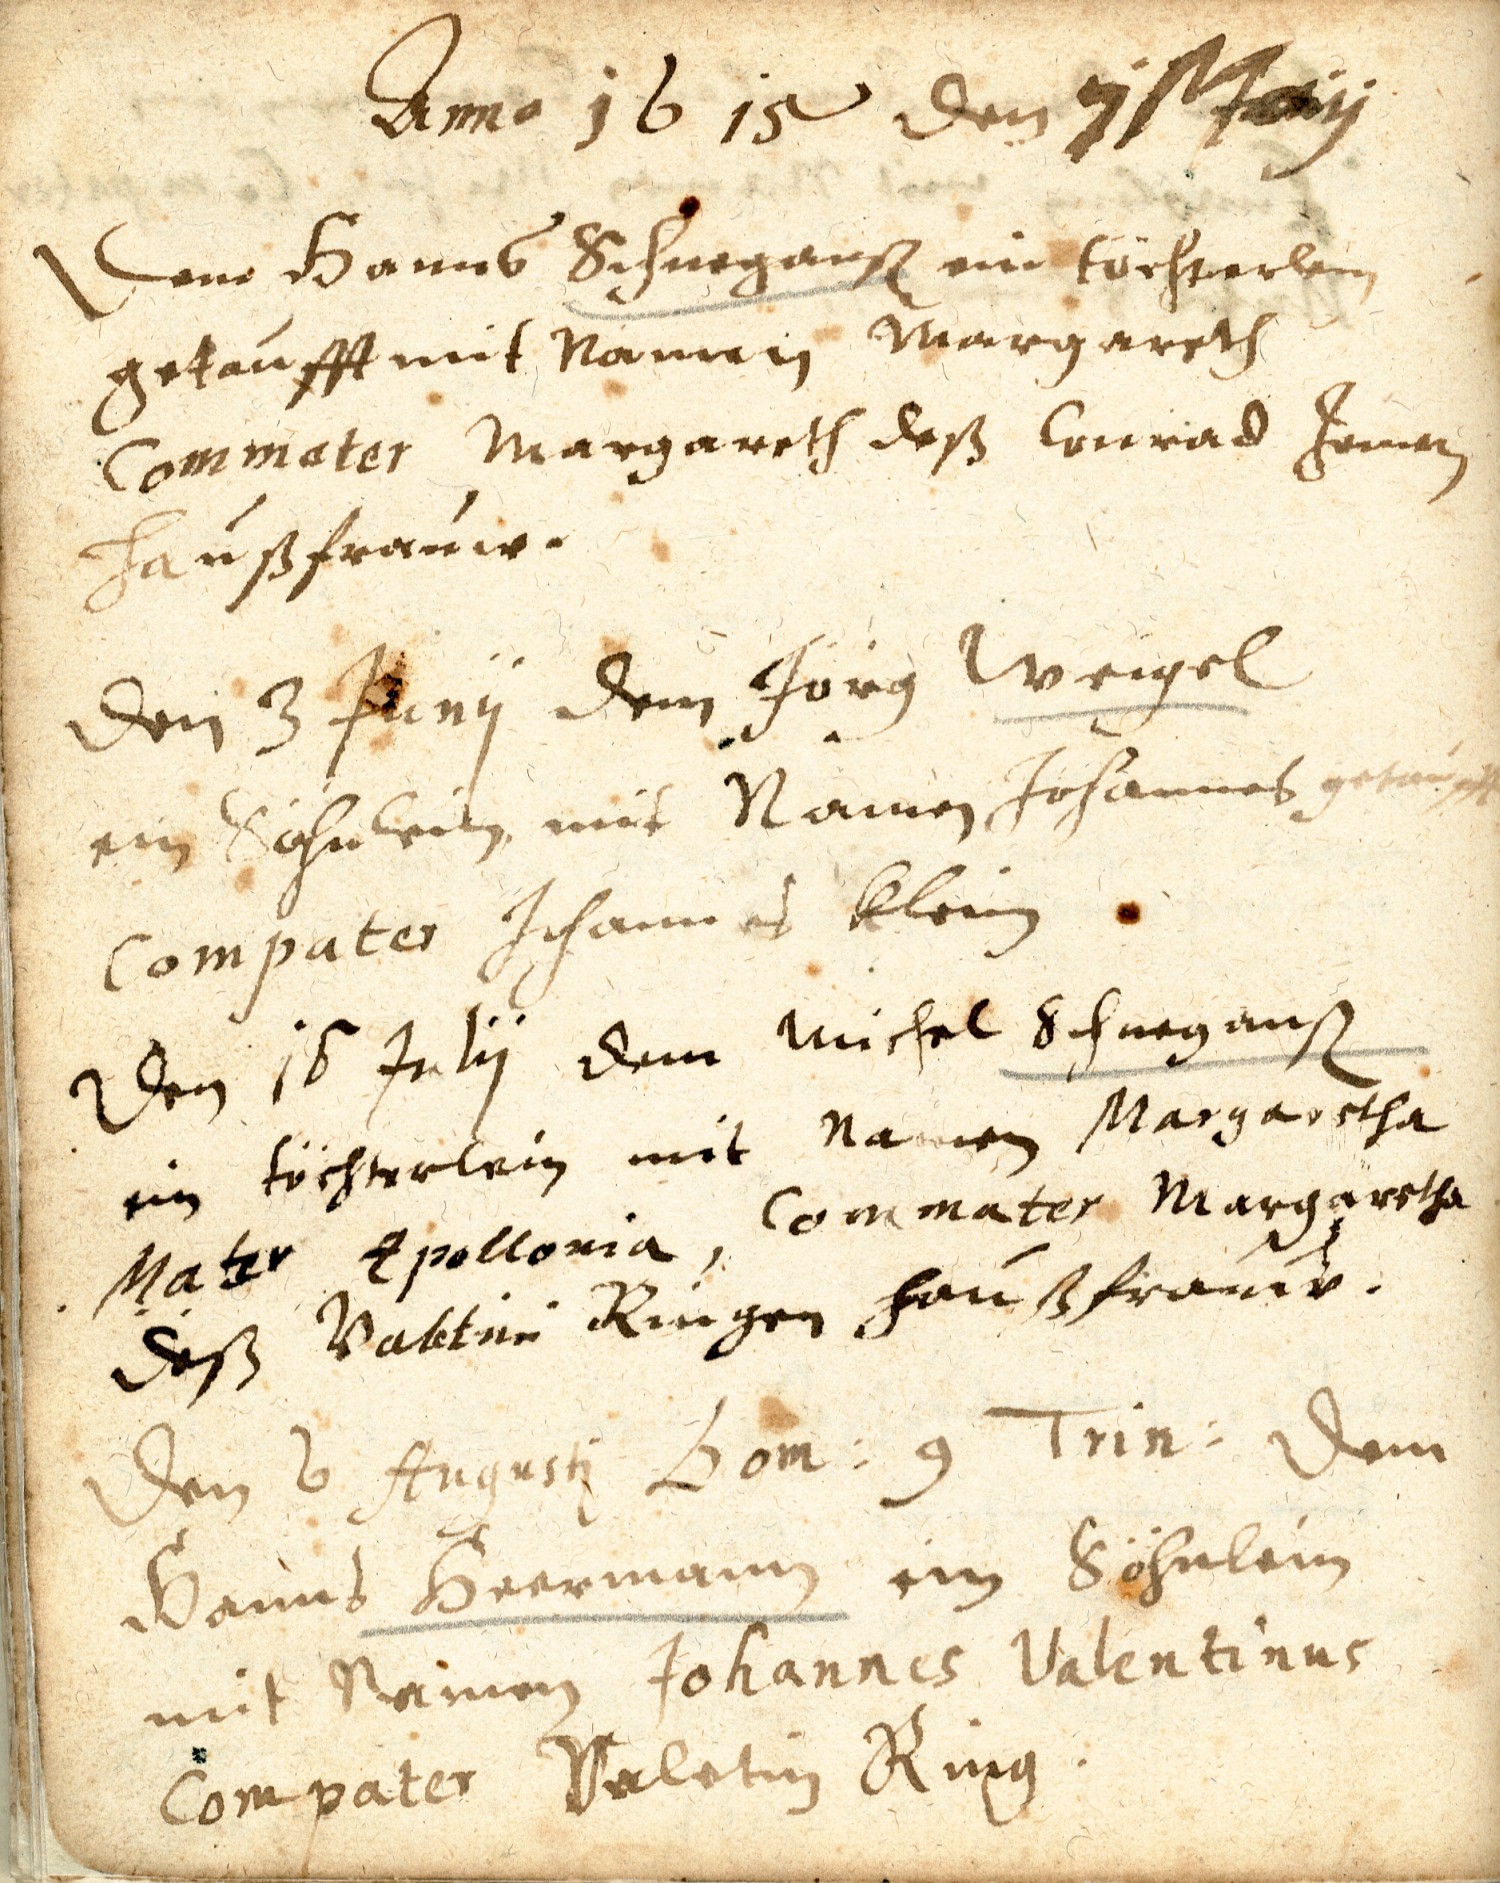 Anno 1615 den 7 Maij
Dem Hanns Schneganß ein töchterlein
getaufft mit Namen Margareth
Commater Margareth deß Conrad
haußfrauw.
Den 3 Junij dem Jörg Weigel
ein Söhnlein mit Namen Johannes getaufft
Compater Johannes Klein
Den 16 Julij dem Michel Schneganß
ein töchterlein mit Namen Margaretha
Mater Apollonia, Commater Margaretha
deß Ringen haußfrauw.
Den 6 Augustj Dom: 9 Trin: dem
Hanns Heermann ein Söhnlein
mit Namen Johannes Valentinus
Compater Valetin Ring.